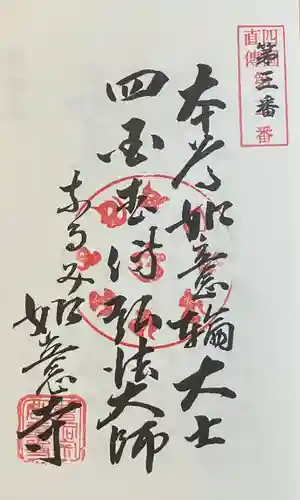 第三番
四国直傳
番
本尊如意輪大士
四国直傳弘法大師
如意寺